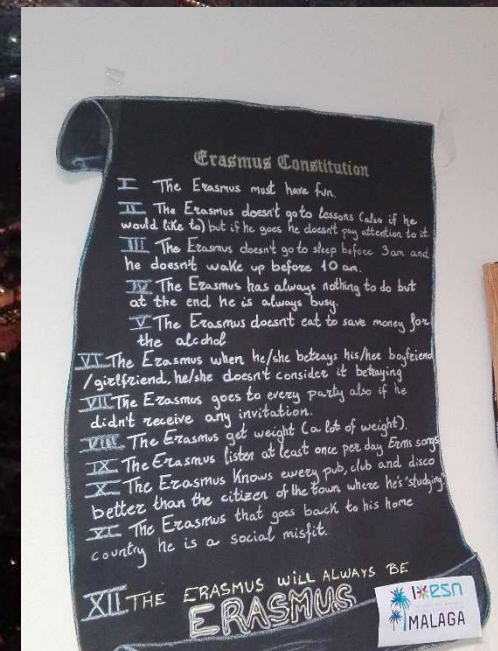 Erasmus Constitution
I The Erasmus must have fun.
II The Erasmus doesn't go to lessons (also if he
would like to) but if he goes he doesn't pay attention to it.
III The Erasmus doesn't go to sleep before 3am and
he doesn't wake up before 10 am.
IV The Erasmus has always nothing to do but
at the end he is always busy.
V The Erasmus doesn't eat to save money for
the alcohol
VI The Erasmus when he/she betrays his/her boyfriend
/girlfriend, he/she doesn't consider it betraying
VII The Erasmus goes to every party also if he
didn't receive any invitation.
VIII The Erasmus get weight (a lot of weight).
IX The Erasmus listen at least once per day Erms songs
X The Erasmus Knows every pub, club and disco
better than the citizen of the town where he's "studying"
XI The Erasmus that goes back to his home
country he is a social misfit.
XII THE ERASMUS WILL ALWAYS BE
ERASMUS
esn
MALAGA